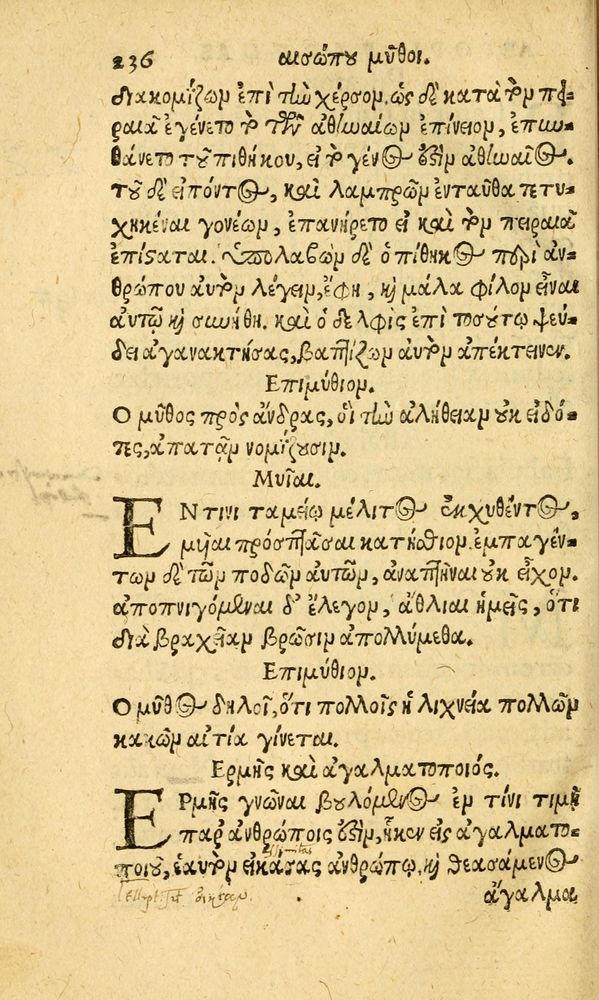 236 αισώπου μῦθοι.
διακομίζων ἐπὶ τὴν χέρσον. ὡς δὲ κατὰ τὸν πει-
ραιᾶ ἐγένετο τὸ τῶν ἀθηναίων ἐπίνειον, ἐπυν-
θάνετο τοῦ πιθήκου, εἰ τὸ γένος ἐστὶν ἀθηναῖος.
τοῦ δὲ εἰπόντος, καὶ λαμπρῶν ἐνταῦθα τετυ-
χηκέναι γονέων, ἐπανήρετο εἰ καὶ τὸν πειραιᾶ
ἐπίσταται. ὑπολαβὼν δὲ ὁ πίθηκος περὶ ἀν-
θρώπου αὐτὸν λέγειν, ἔφη, καὶ μάλα φίλον εἶναι
αὐτῷ καὶ συνήθη. καὶ ὁ δελφὶς ἐπὶ τοσούτῳ ψεύ-
δει ἀγανακτήσας, βαπτίζων αὐτὸν ἀπέκτεινεν.
Επιμύθιον.
Ο μῦθος πρὸς ἄνδρας, οἳ τὴν ἀλήθειαν οὐκ εἰδό-
τες, ἀπατᾶν νομίζουσιν.
Μυῖαι.
ΕΝ τινι ταμείῳ μέλιτος ἐκχυθέντος,
μυῖαι προσπτᾶσαι κατήσθιον. ἐμπαγέν-
των δὲ τῶν ποδῶν αὐτῶν, ἀναπτῆναι οὐκ εἶχον.
ἀποπνιγόμεναι δ' ἔλεγον, ἄθλιαι ἡμεῖς, ὅτι
διὰ βραχεῖαν βρῶσιν ἀπολλύμεθα.
Επιμύθιον.
Ο μῦθος δηλοῖ, ὅτι πολλοῖς ἡ λιχνεία πολλῶν
κακῶν αἰτία γίνεται.
Ερμῆς καὶ ἀγαλματοποιός.
ΕΡμῆς γνῶναι βουλόμενος ἐν τίνι τιμῇ
παρ' ἀνθρώποις ἐστὶν, ἧκεν εἰς ἀγαλματο-
ποιοῦ, ἑαυτὸν εἰκάσας ἀνθρώπῳ, καὶ θεασάμενος
ἄγαλμα